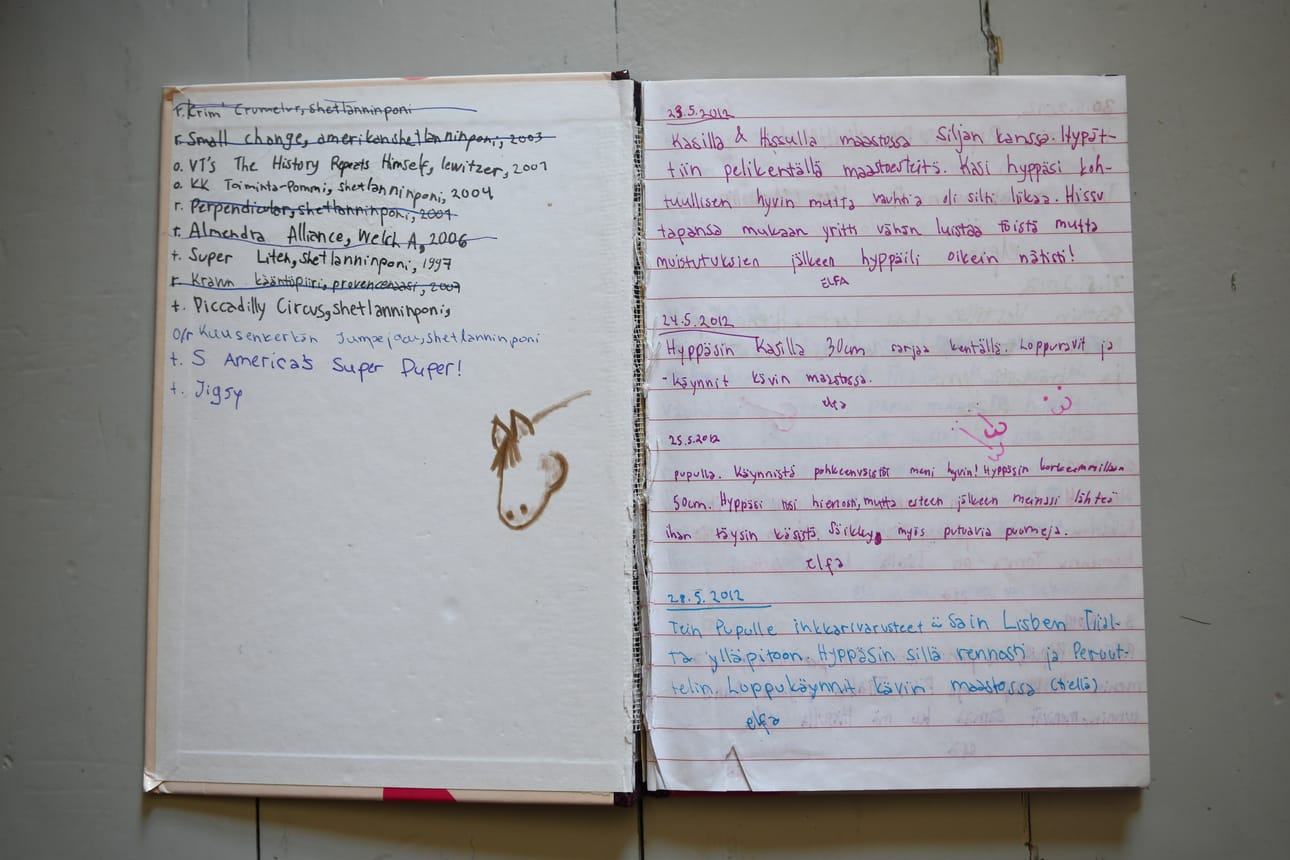 r. Krim' Crumelur, shetlanninponi
r. Small change, amerikanshetlanninponi, 2003
o. VT's The History Repeats Himself, lewitzer, 2007
o. KK Toiminta-Pommi, shetlanninponi, 2004
r. Perpendicular, shetlanninponi, 2001
r. Almendra Alliance, Welch A, 2006
t. Super Liten, shetlanninponi, 1997
r. Krawn kääntöpiiri, provenceaasi, 2007
t. Piccadilly Circus, shetlanninponi,
o/r Kuusenkerkän Jumpejacu, shetlanninponi
t. S America's Super Duper!
t. Jigsy
23.5.2012
Käsillä & Hissulla maastossa Siljan kanssa. Hypät-
tiin pelikentällä maastoesteitä. Käsi hyppäsi koh-
tuullisen hyvin mutta vauhtia oli silti liikaa. Hissu
tapansa mukaan yritti vähän luistaa töistä mutta
muistutuksien jälkeen hyppäili oikein nätisti!
ELFA
24.5.2012
Hyppäsin Käsillä 30cm sarjaa kentällä. Loppuravit ja
-käynnit kävin maastossa.
elfa
25.5.2012
pupulla. Käynnistä pohkeenväistöt meni hyvin! Hyppäsin korkeimmillaan
50cm. Hyppäsi tosi hienosti, mutta esteen jälkeen meinasi lähteä
ihan täysin käsistä. Säikkyy myös putoavia puomeja.
elfa
28.5.2012
Tein Pupulle inkkarivarusteet ü Sain Lisben Tiial-
ta ylläpitoon. Hyppäsin sillä rennosti ja Peruut-
telin. Loppukäynnit kävin maastossa (tiellä)
elfa